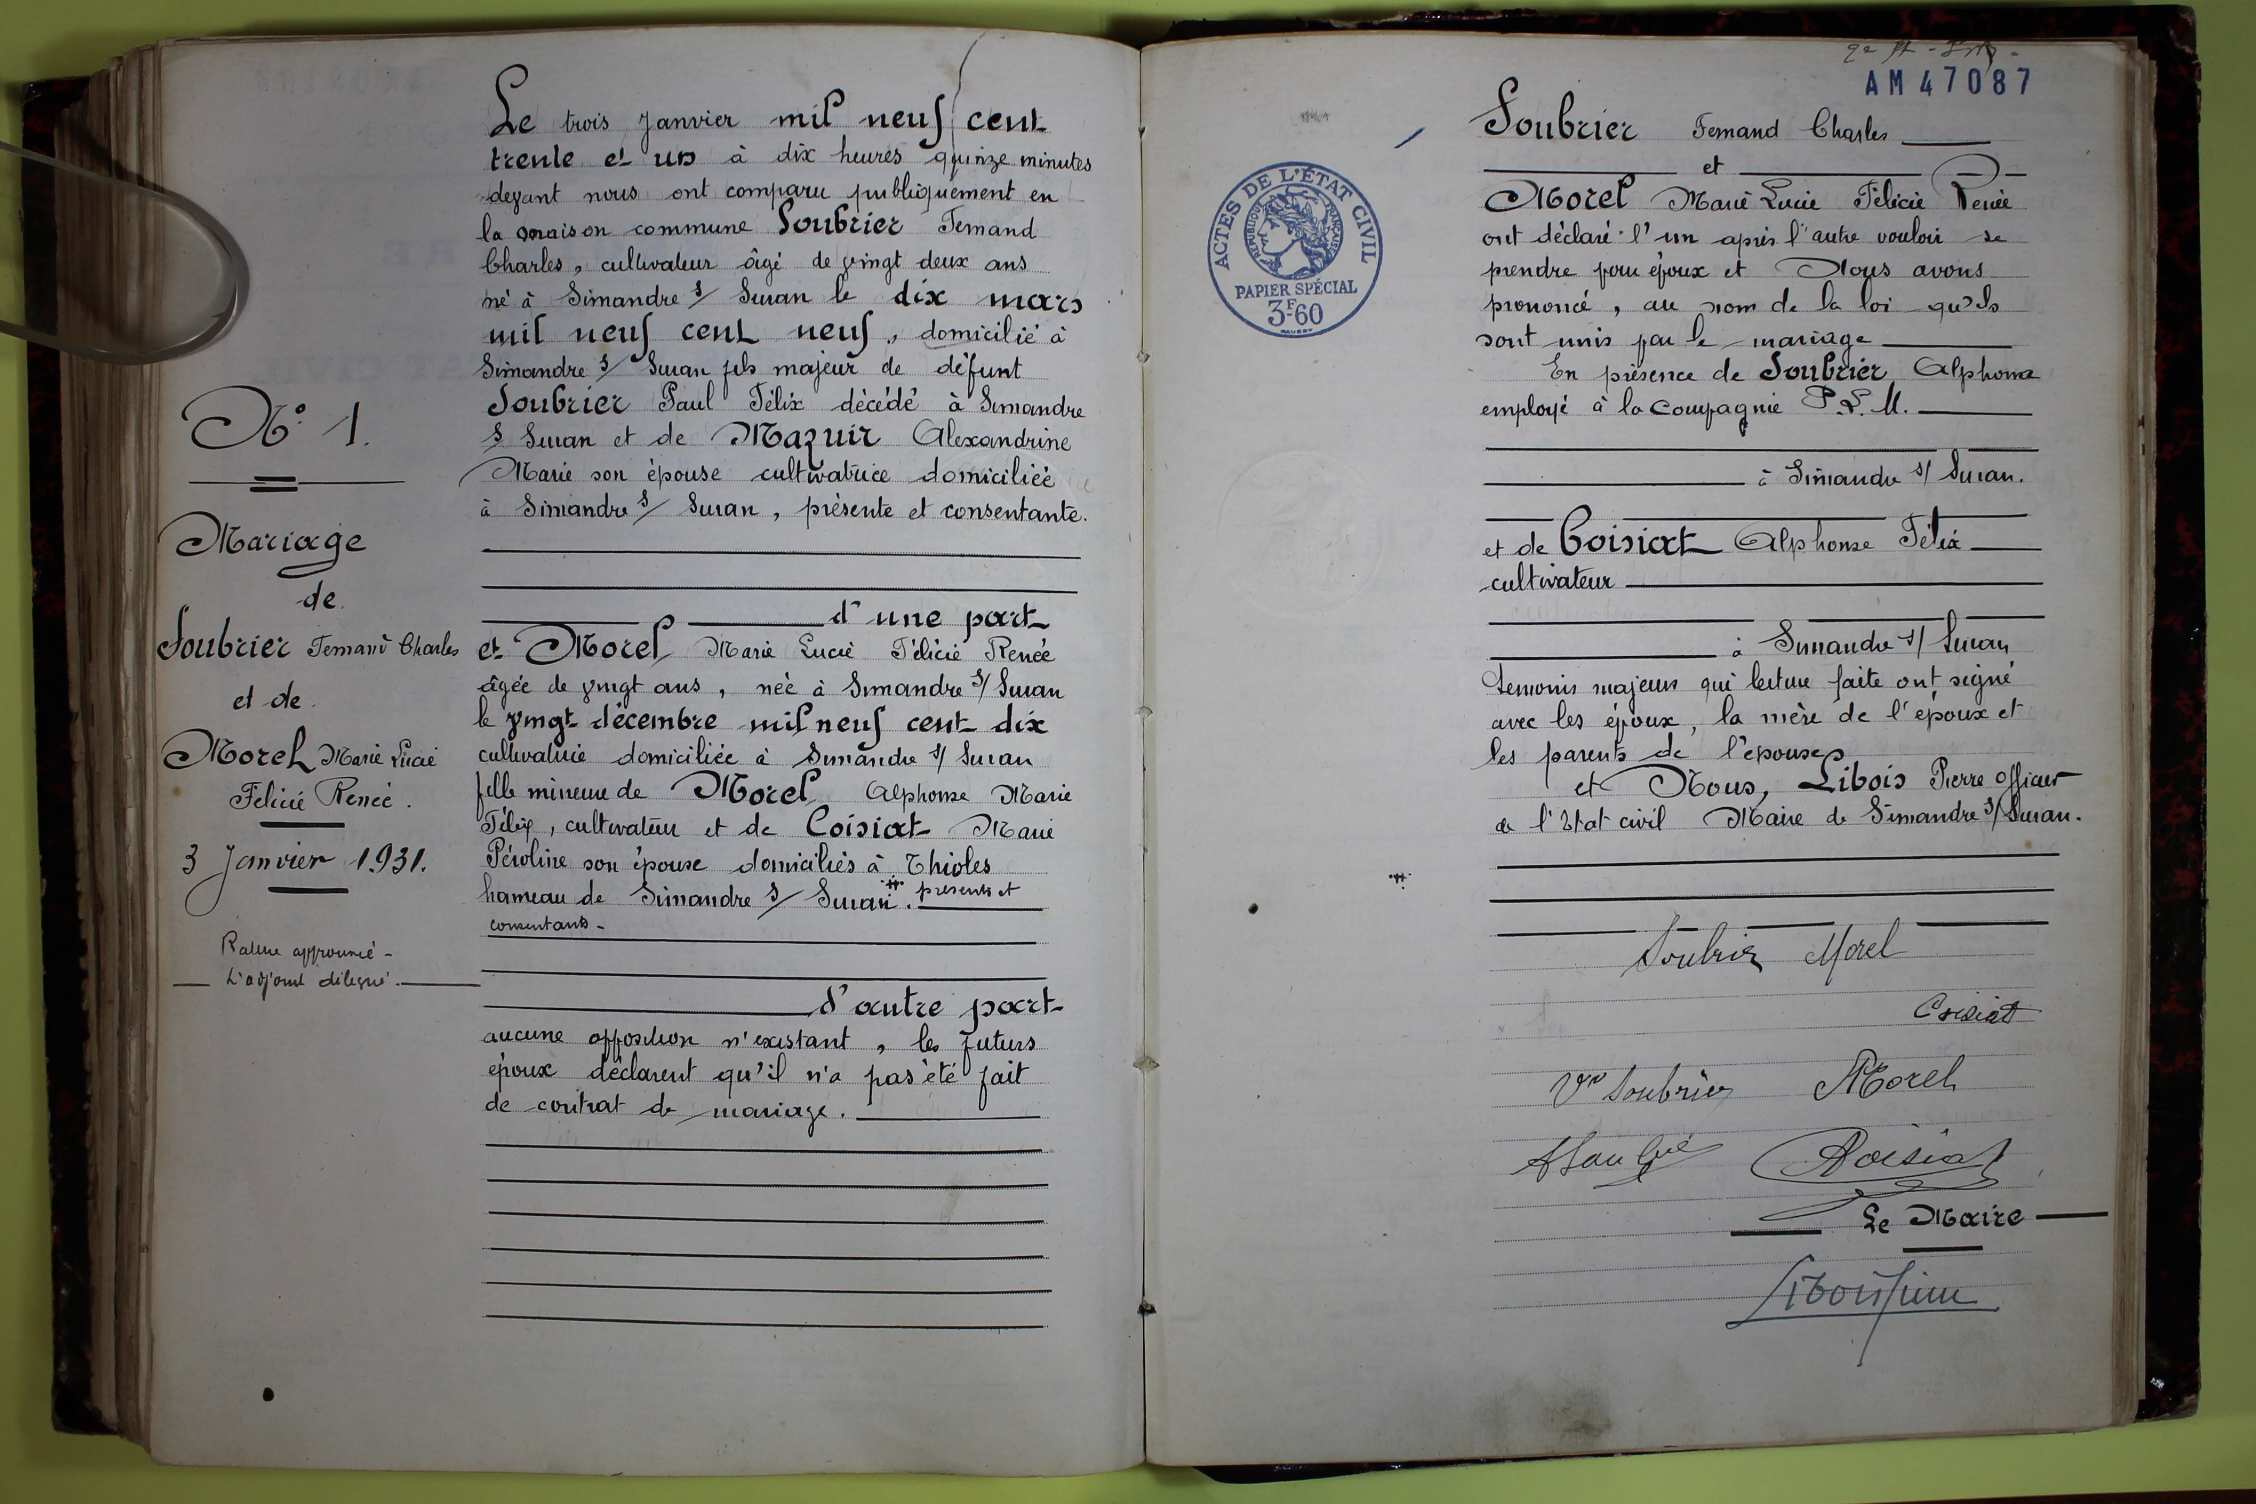 Le trois Janvier mil neuf cent
trente et un à dix heures quinze minutes
devant nous ont comparu publiquement en
la maison commune Soubrier Fernand
Charles, cultivateur âgé de vingt deux ans
né à Simandre s/ Suran le dix mars
mil neuf cent neuf, domicilié à
Simandre s/ Suran fils majeur de défunt
Soubrier Paul Félix décédé à Simandre
s/ Suran et de Mazuir Alexandrine
Marie son épouse cultivatrice domiciliée
à Simandre s/ Suran, présente et consentante.
d'une part
et Morel Marie Lucie Félicie Renée
âgée de vingt ans, née à Simandre s/ Suran
le vingt décembre mil neuf cent dix
cultivatrice domiciliée à Simandre s/ Suran
fille mineure de Morel Alphonse Marie
Félix, cultivateur et de Coisiat Marie
Péroline son épouse domiciliés à Thioles
hameau de Simandre s/ Suran. présents et
consentants -
d'autre part
aucune opposition n'existant, les futurs
époux déclarent qu'il n'a pas été fait
de contrat de mariage.
N° 1.
Mariage
de
Soubrier Fernand Charles
et de
Morel Marie Lucie
Félicie Renée.
3 Janvier 1931.
Rature approuvée -
L'adjoint délégué.
AM 47087
ACTES DE L'ÉTAT CIVIL
RÉPUBLIQUE FRANÇAISE
PAPIER SPÉCIAL
3F60
Soubrier Fernand Charles
et
Morel Marie Lucie Félicie Renée
ont déclaré l'un après l'autre vouloir se
prendre pour époux et Nous avons
prononcé, au nom de la loi qu'ils
sont unis par le mariage
En présence de Soubrier Alphonse
employé à la Compagnie P.L.M.
à Simandre s/ Suran.
et de Coisiat Alphonse Félix
cultivateur
à Simandre s/ Suran
témoins majeurs qui lecture faite ont signé
avec les époux, la mère de l'époux et
les parents de l'épouse
et Nous, Libois Pierre officier
de l'Etat civil Maire de Simandre s/ Suran.
Soubrier Morel
Coisiat
Vve Soubrier Morel
Coisiat
Le Maire
Libois Pierre